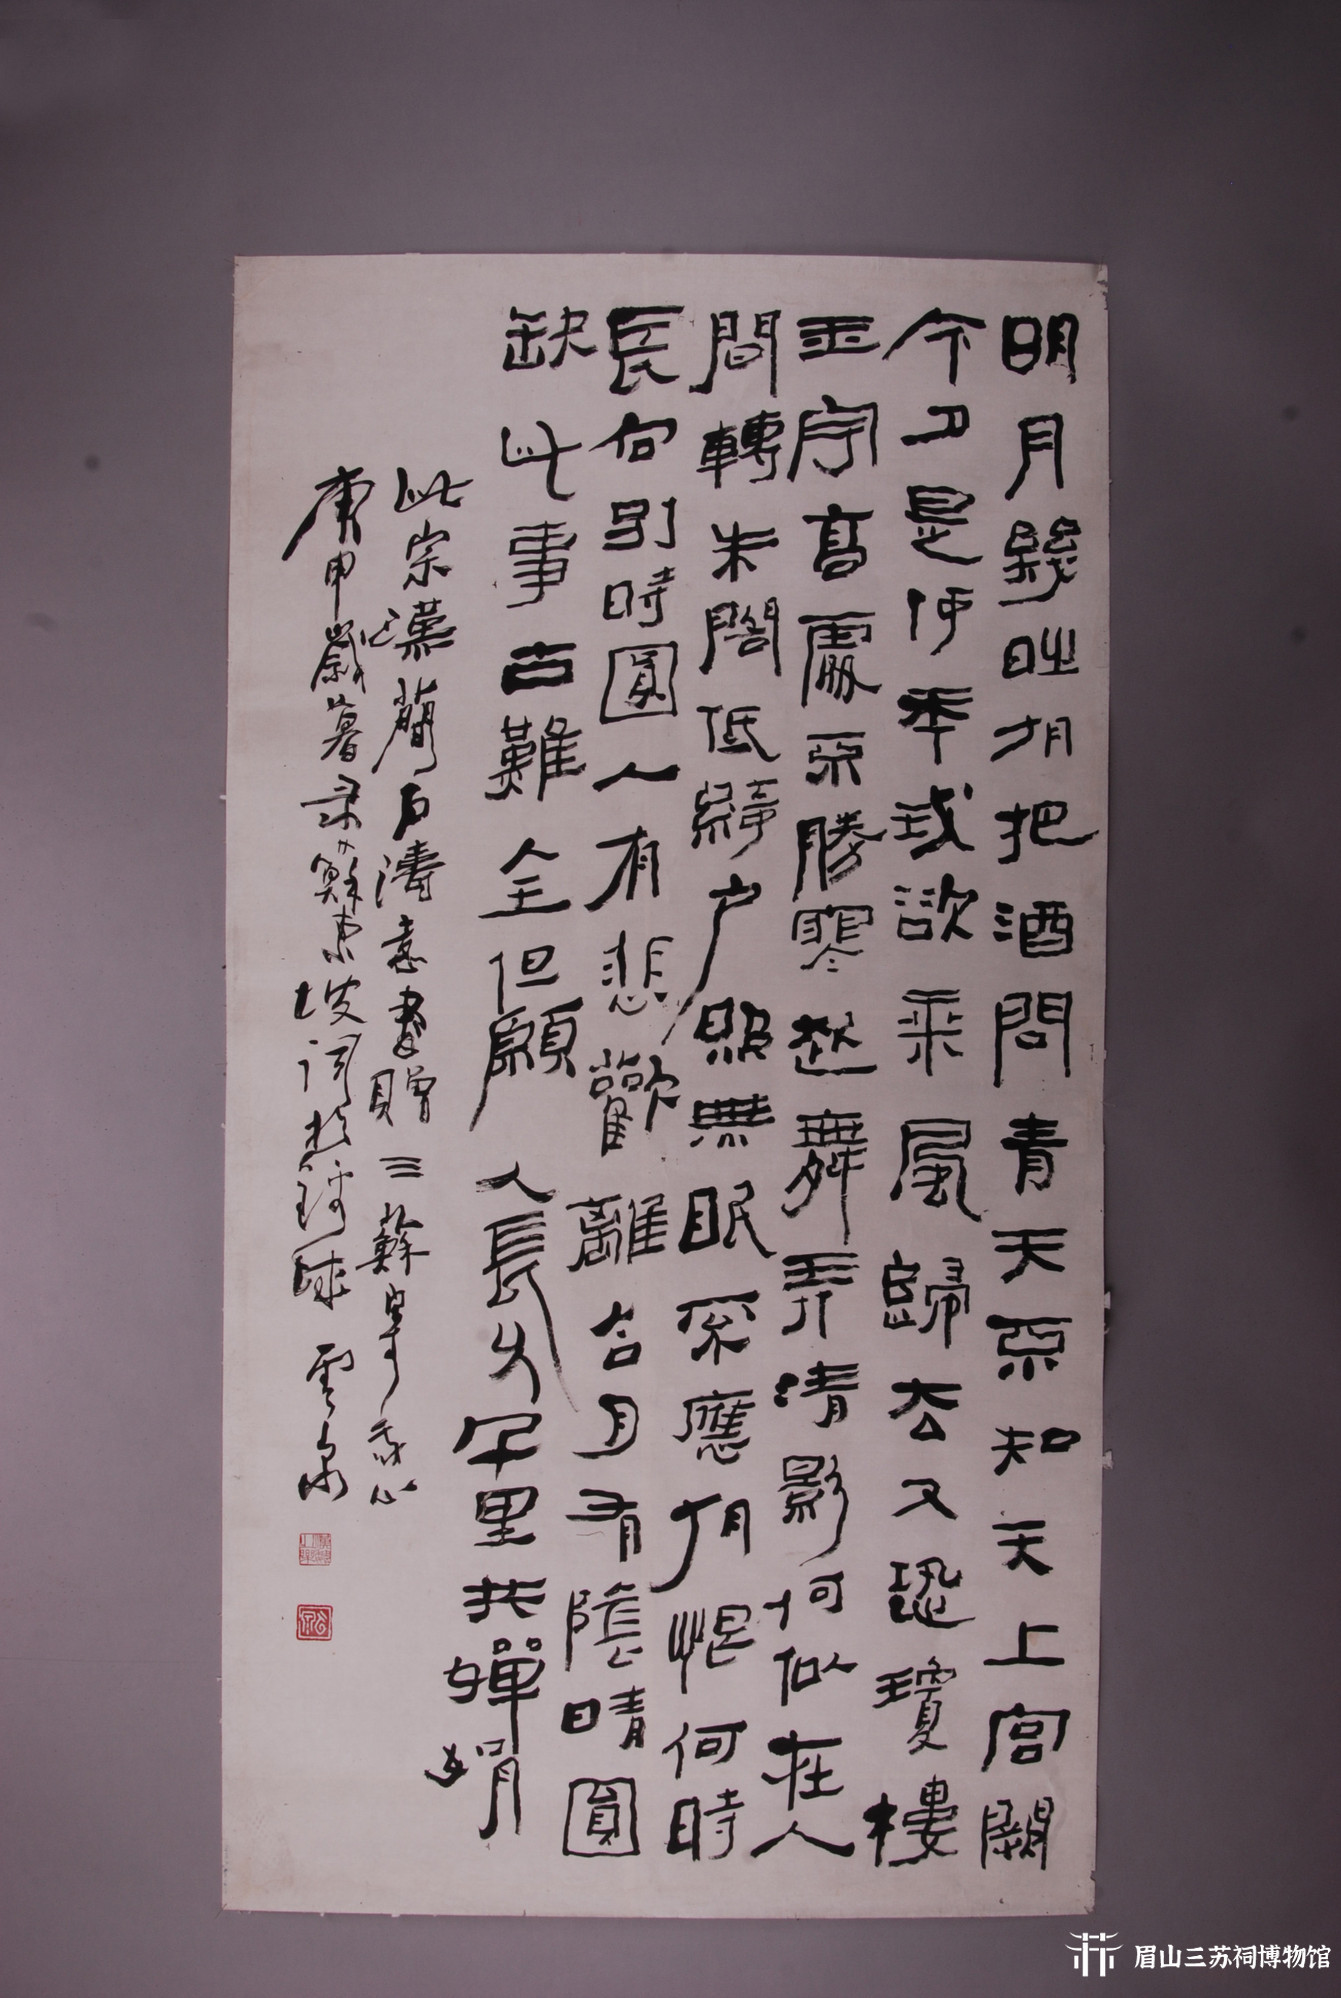 明月幾時有把酒問青天不知天上宮闕
今夕是何年我欲乘風歸去又恐瓊樓
玉宇高處不勝寒起舞弄清影何似在人
間轉朱閣低綺戶照無眠不應有恨何時
長向別時圓人有悲歡離合月有陰晴圓
缺此事古難全但願人長久千里共嬋娟
此宗漢簡石濤意書贈三蘇
庚申歲暮录蘇東坡詞於 雲泉
眉山三苏祠博物馆